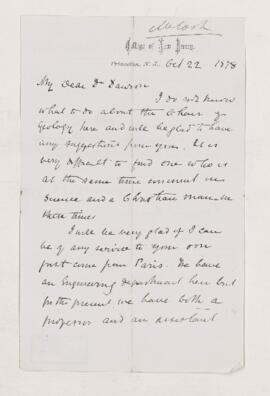 McCosh
College of New Jersey,
Princeton, N.J. Oct 22 1878
My Dear Dr Dawson
I do not know
what to do about the Chair of
Geology here and will be glad to have
any suggestions from you. It is
very difficult to find one who is
at the same time eminent in
science and a Christian man in
these times
I will be very glad if I can
be of any service to your son
just come from Paris. We have
an Engineering department here but
for the present we have both a
professor and an assistant